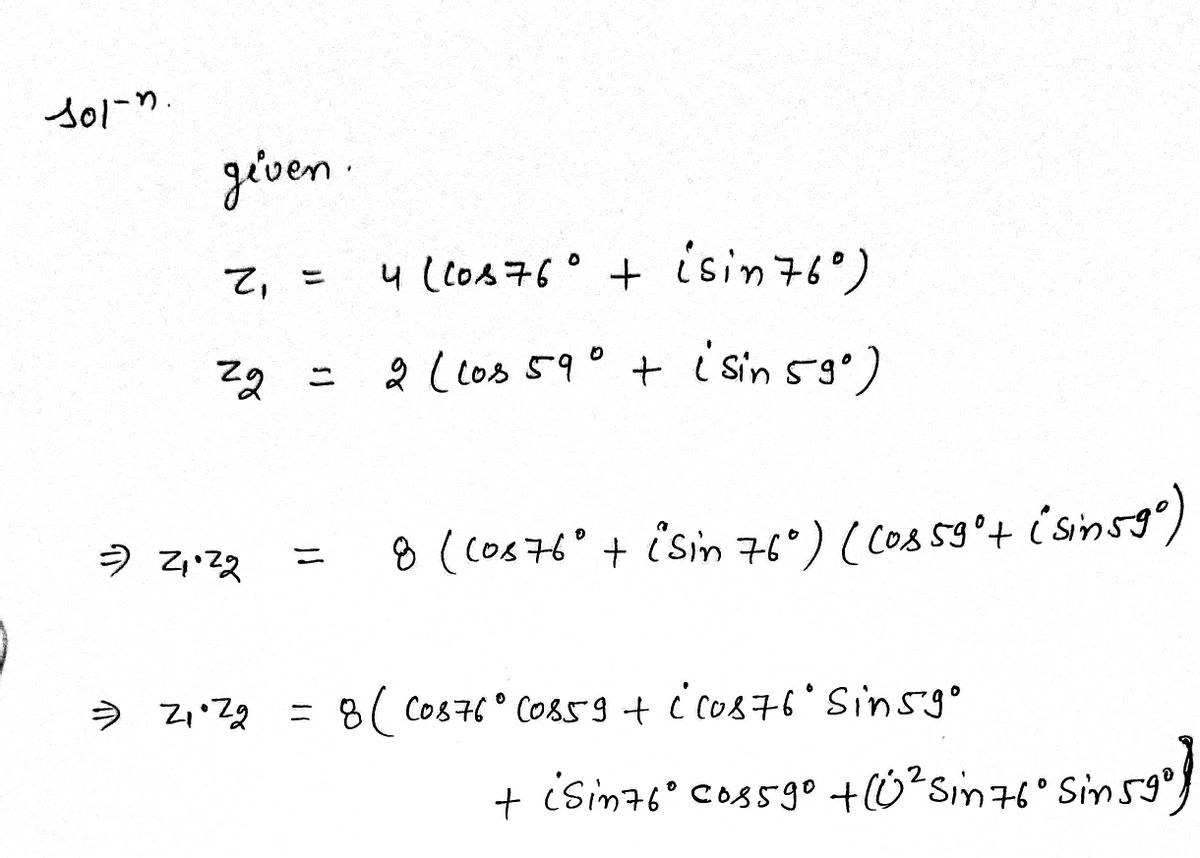 sol-n.
given.
z₁ = 4 (cos76° + isin76°)
z2 = 2 (cos 59° + i sin 59°)
⇒ z₁·z2 = 8 (cos76° + isin 76°) (cos59° + isin59°)
⇒ z₁·z2 = 8( cos76° cos59 + i cos76° sin59°
+ isin76° cos59° + (i)² sin76° sin59°)